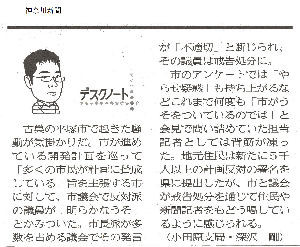 神奈川新聞
デスクノート
古巣の平塚市で起きた騒
動が気掛かりだ。市が進め
ている開発計画を巡って
「多くの市民が計画に賛成
している」旨を主張する市
に対して、市議会で反対派
の議員が「明らかなうそ」
とかみついた。市長派が多
数を占める議会でその発言
が「不適切」と断じられ、
その議員は戒告処分に。
市のアンケートでは「や
らせ疑惑」も持ち上がるな
どこれまで何度も「市がう
そをついているのでは」と
会見で問い詰めていた担当
記者としては背筋が凍っ
た。地元住民は新たに5千
人以上の計画反対の署名を
県に提出したが、市と議会
が戒告処分を通じて住民や
新聞記者をもどう喝してい
るように感じられる。
（小田原支局・深沢 剛）